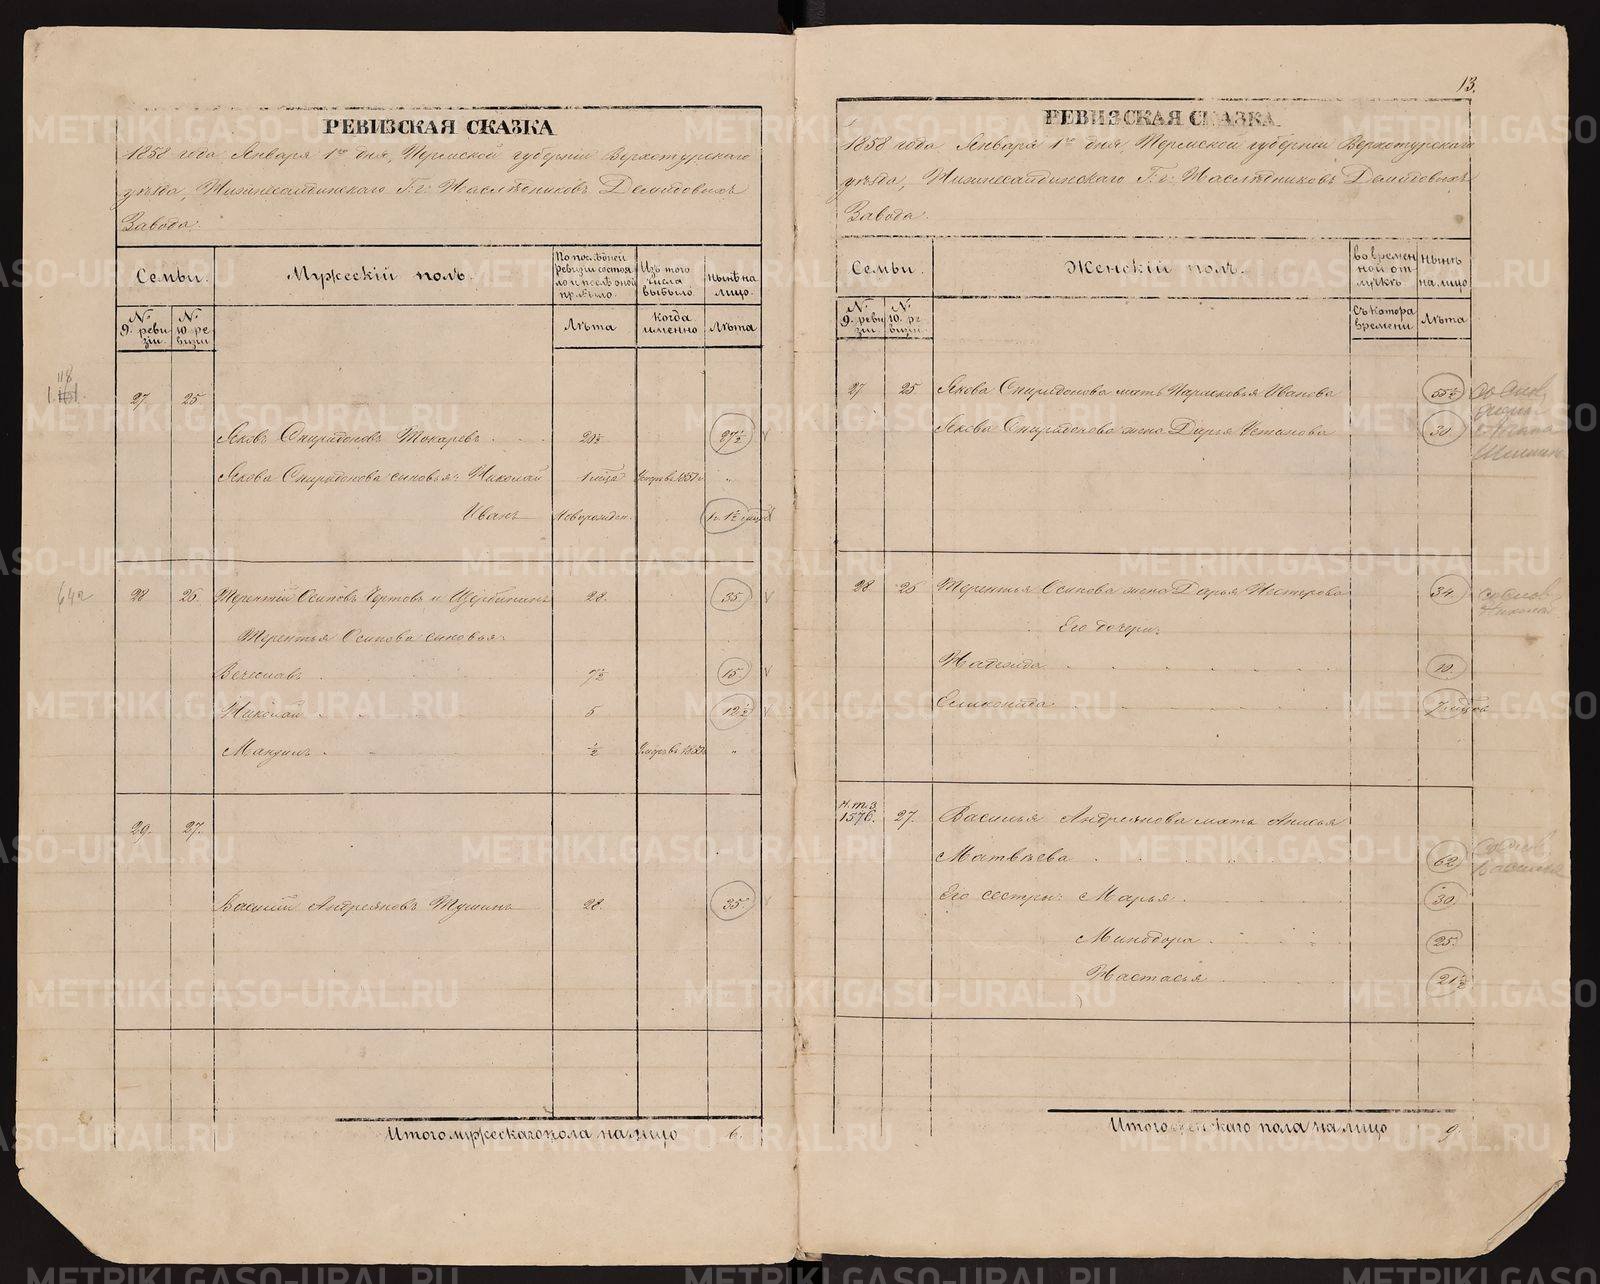 РЕВИЗСКАЯ СКАЗКА
1858 года, Января 1го дня, Пермской губернии Верхотурского
уѣзда, Нижнесалдинскаго Г.г: Наслѣдниковъ Демидовыхъ
Завода.
Семьи. Мужескій полъ. По послѣдней ревизіи состояло и послѣ оной прибыло. Изъ того числа выбыло. Нынѣ на лицо.
№ 9. ревизіи. № 10 ревизіи Лѣта Когда именно Лѣта
118
27. 25
Яковъ Спиридоновъ Токаревъ 20½ 27½
Якова Спиридонова сыновья: Николай 1 мѣся. "
Иванъ Новорожден. 1г. 1½
64а 28 26. Терентій Осиповъ Чертовъ и Щербининъ 28. 35
Терентья Осипова сыновья:
Вячеславъ 7½ 15
Николай 5 12½
½ "
29. 27.
Василій Андреяновъ Тушинъ 28. 35.
Итого мужескаго пола на лицо 6.
13.
РЕВИЗСКАЯ СКАЗКА
1858 года, Января 1го дня, Пермской губернии Верхотурскаго
уѣзда, Нижнесалдинскаго Г.г: Наслѣдниковъ Демидовыхъ
Завода.
Семьи. Женскій полъ. Во временной отлучкѣ Нынѣ на лицо
№ 9. ревизіи. № 10. ревизіи Съ котора времени Лѣта
27 25 Якова Спиридонова мать Парасковья Иванова 55½
Якова Спиридонова жена Дарья Устинова 30.
28 26 Терентья Осипова жена Дарья Нестерова 34.
Его дочери:
Надежда 10.
7
Н.Т.З. 1576. 27. Василья Андреянова мать Анисья
Матвѣева 62
Его сестры: Марья 30.
Минодора 25.
Настасья 21½
Итого женскаго пола на лицо 9.
METRIKI.GASO-URAL.RU